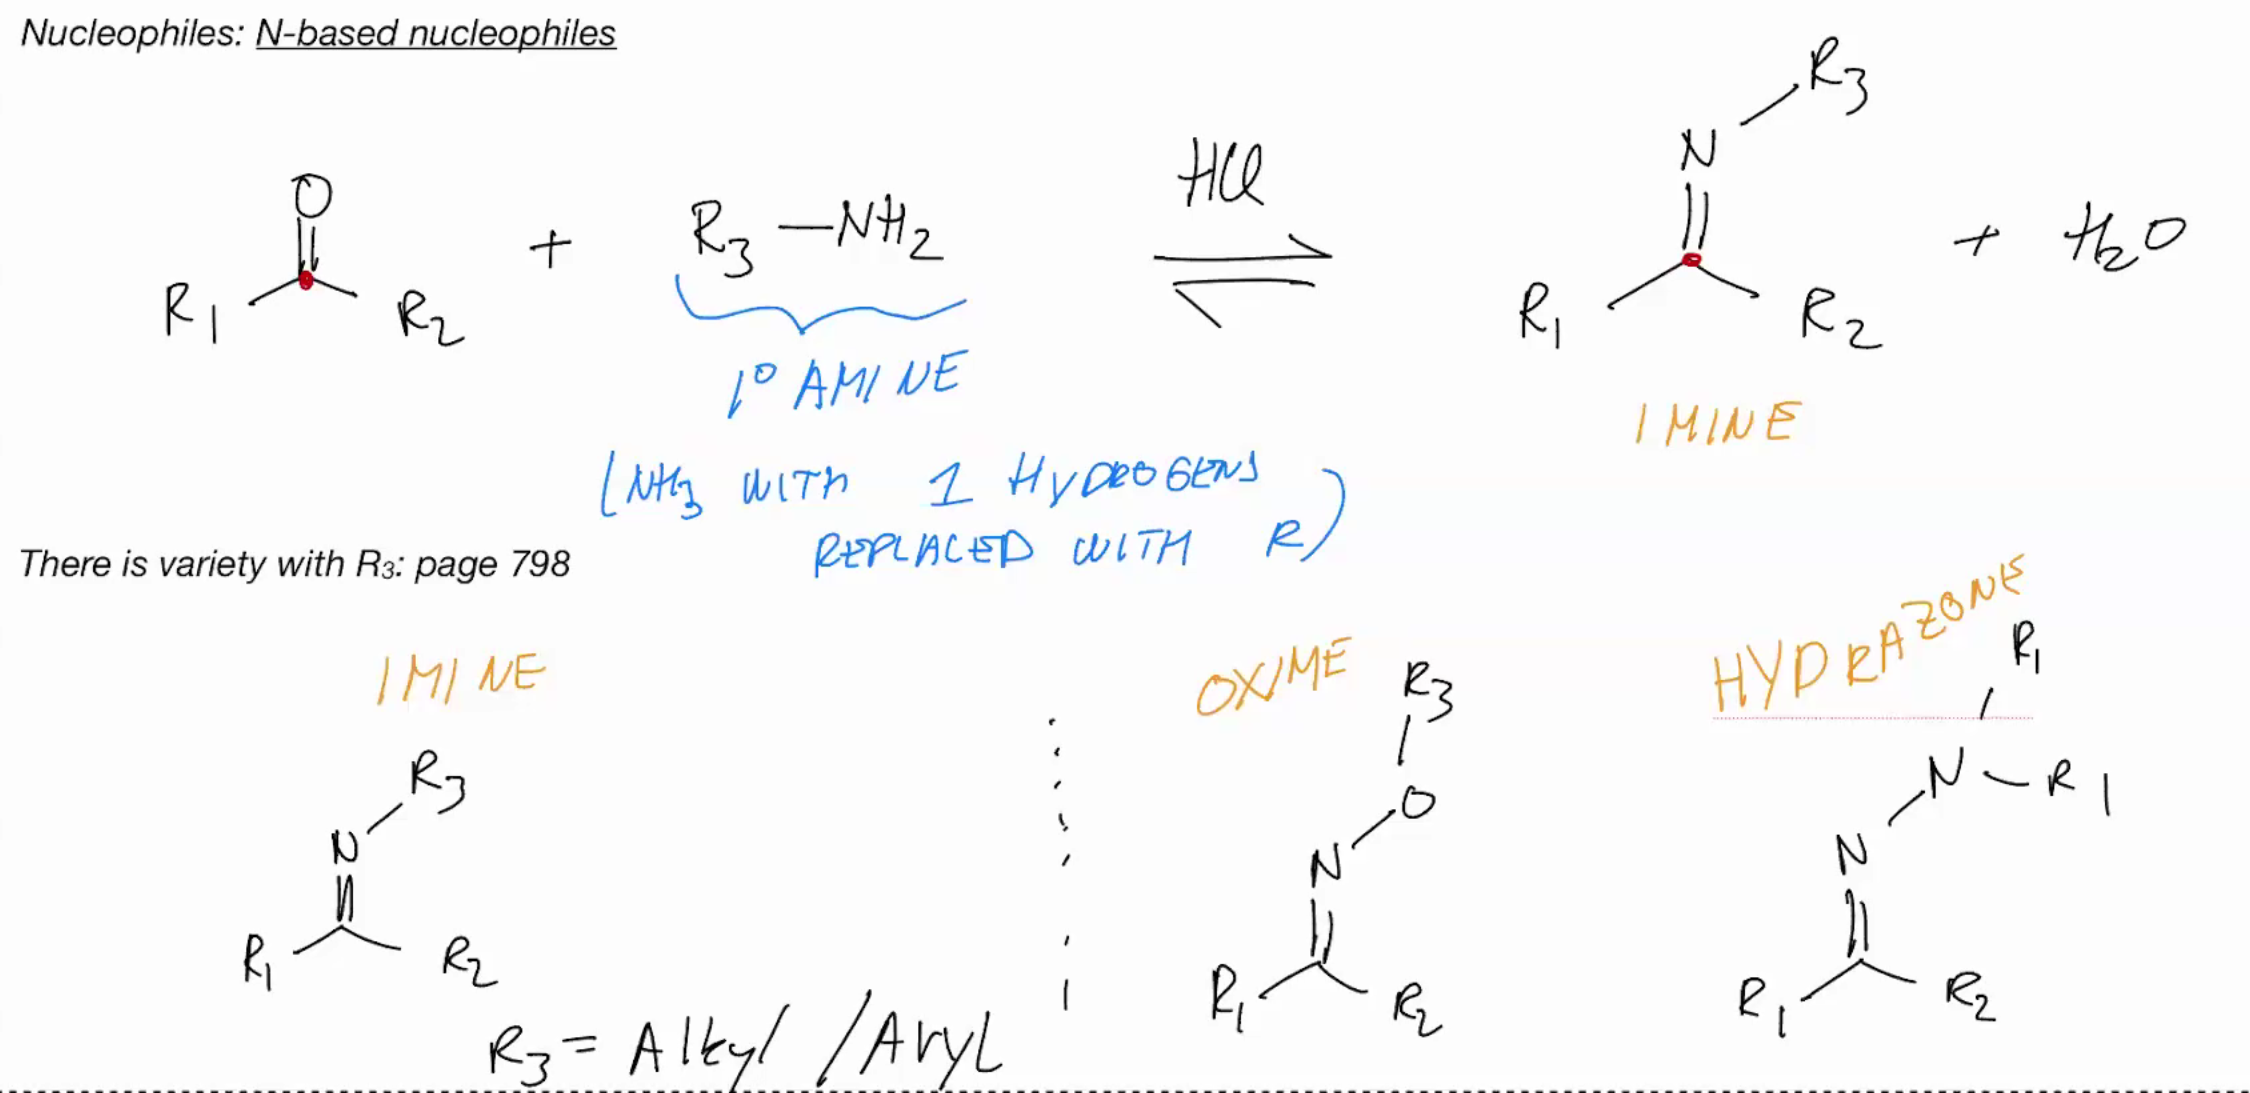 Nucleophiles: N-based nucleophiles
O
R1 R2
+
R3 —NH2
HCl
N R3
R1 R2
+ H2O
1° AMINE
IMINE
(NH3 WITH 1 HYDROGENS
REPLACED WITH R)
There is variety with R3: page 798
IMINE
N R3
R1 R2
R3 = Alkyl / Aryl
OXIME
R3
O
N
R1 R2
HYDRAZONE
R1
N – R1
N
R1 R2